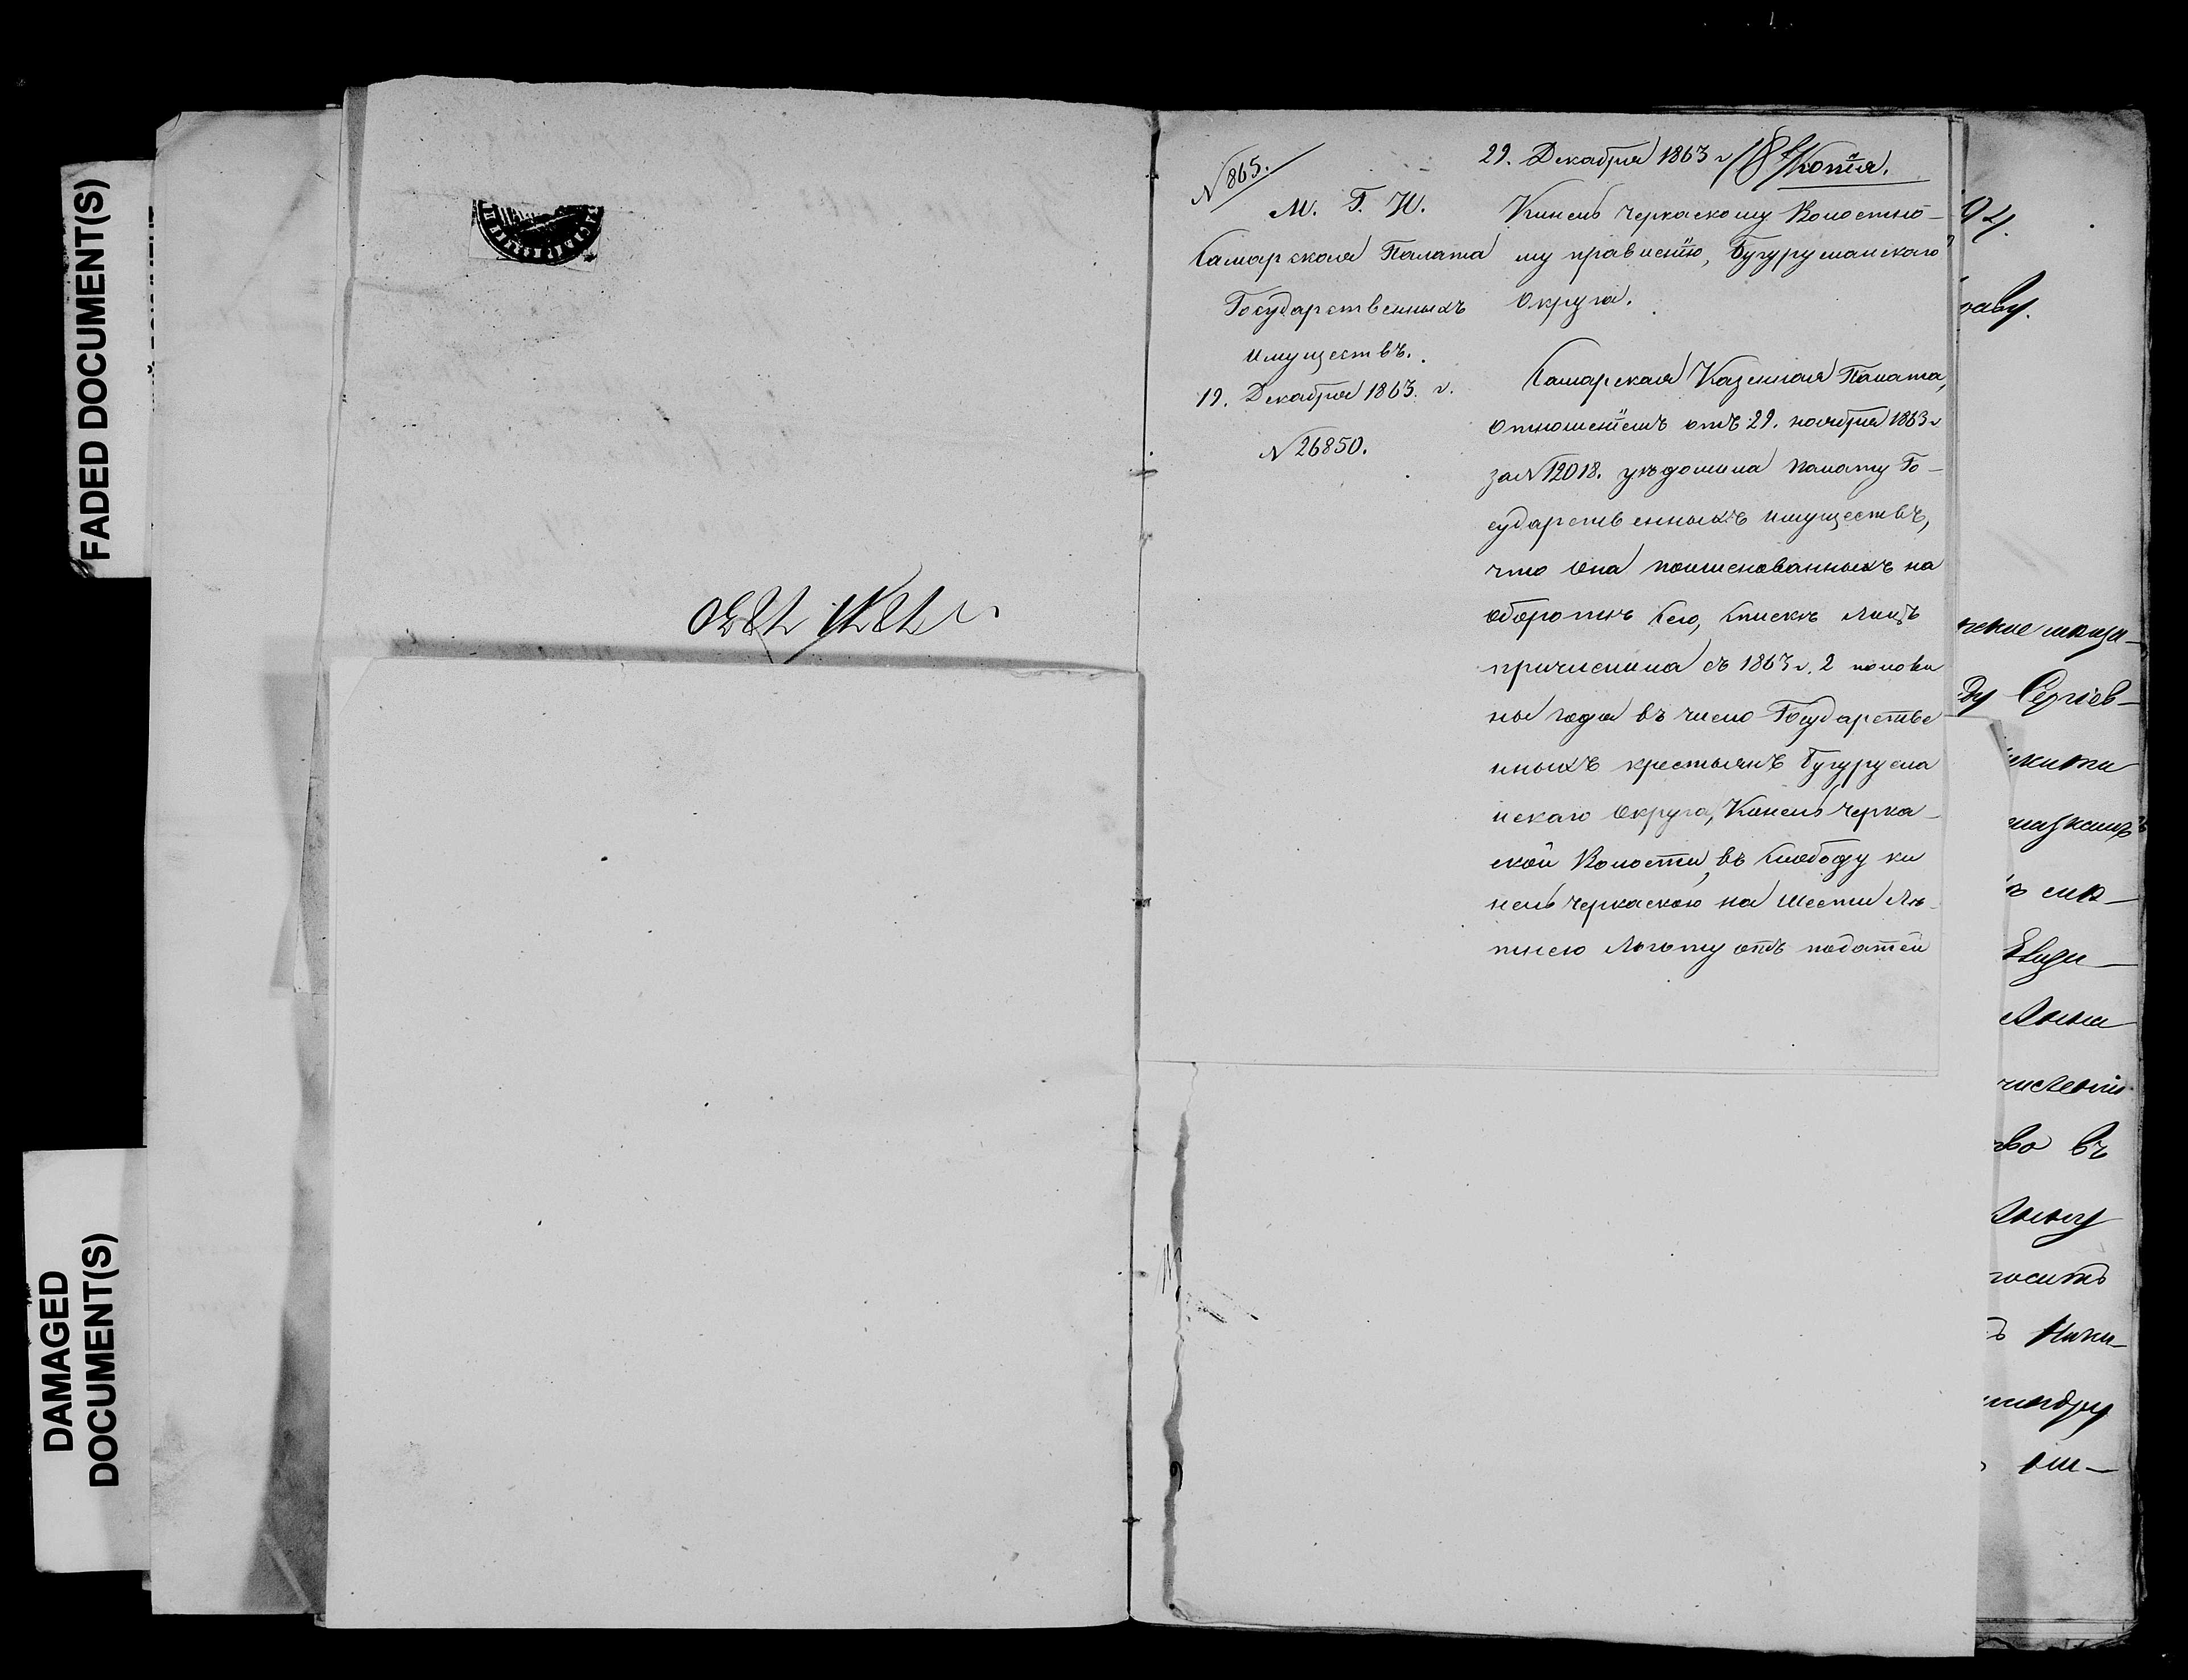 FADED DOCUMENT(S)
DAMAGED
DOCUMENT(S)
№ 865.
М. Г. И.
Самарская Палата
Государственныхъ
имуществъ.
19. Декабря 1863. г.
№ 26850.
29. Декабря 1863 г Копія.
Кинель Черкаскому Волостно-
му правленію, Бугурусланскаго
Округа.
Самарская Казенная Палата,
отношеніемъ отъ 29. ноября 1863 г
за № 12018. уведомила палату Го-
сударственныхъ имуществъ,
что она поименованныхъ на
оборотѣ сего, спискѣ лицъ
причислила съ 1863 г. 2 полови
ны года въ число Государстве
нныхъ крестьянъ Бугурусла
нскаго Округа, Кинель Черка-
ской Волости, въ Слободу Ки
нель Черкаскою на шести лѣ-
тнею льготу отъ податей
Сергіев-
Анна
во въ